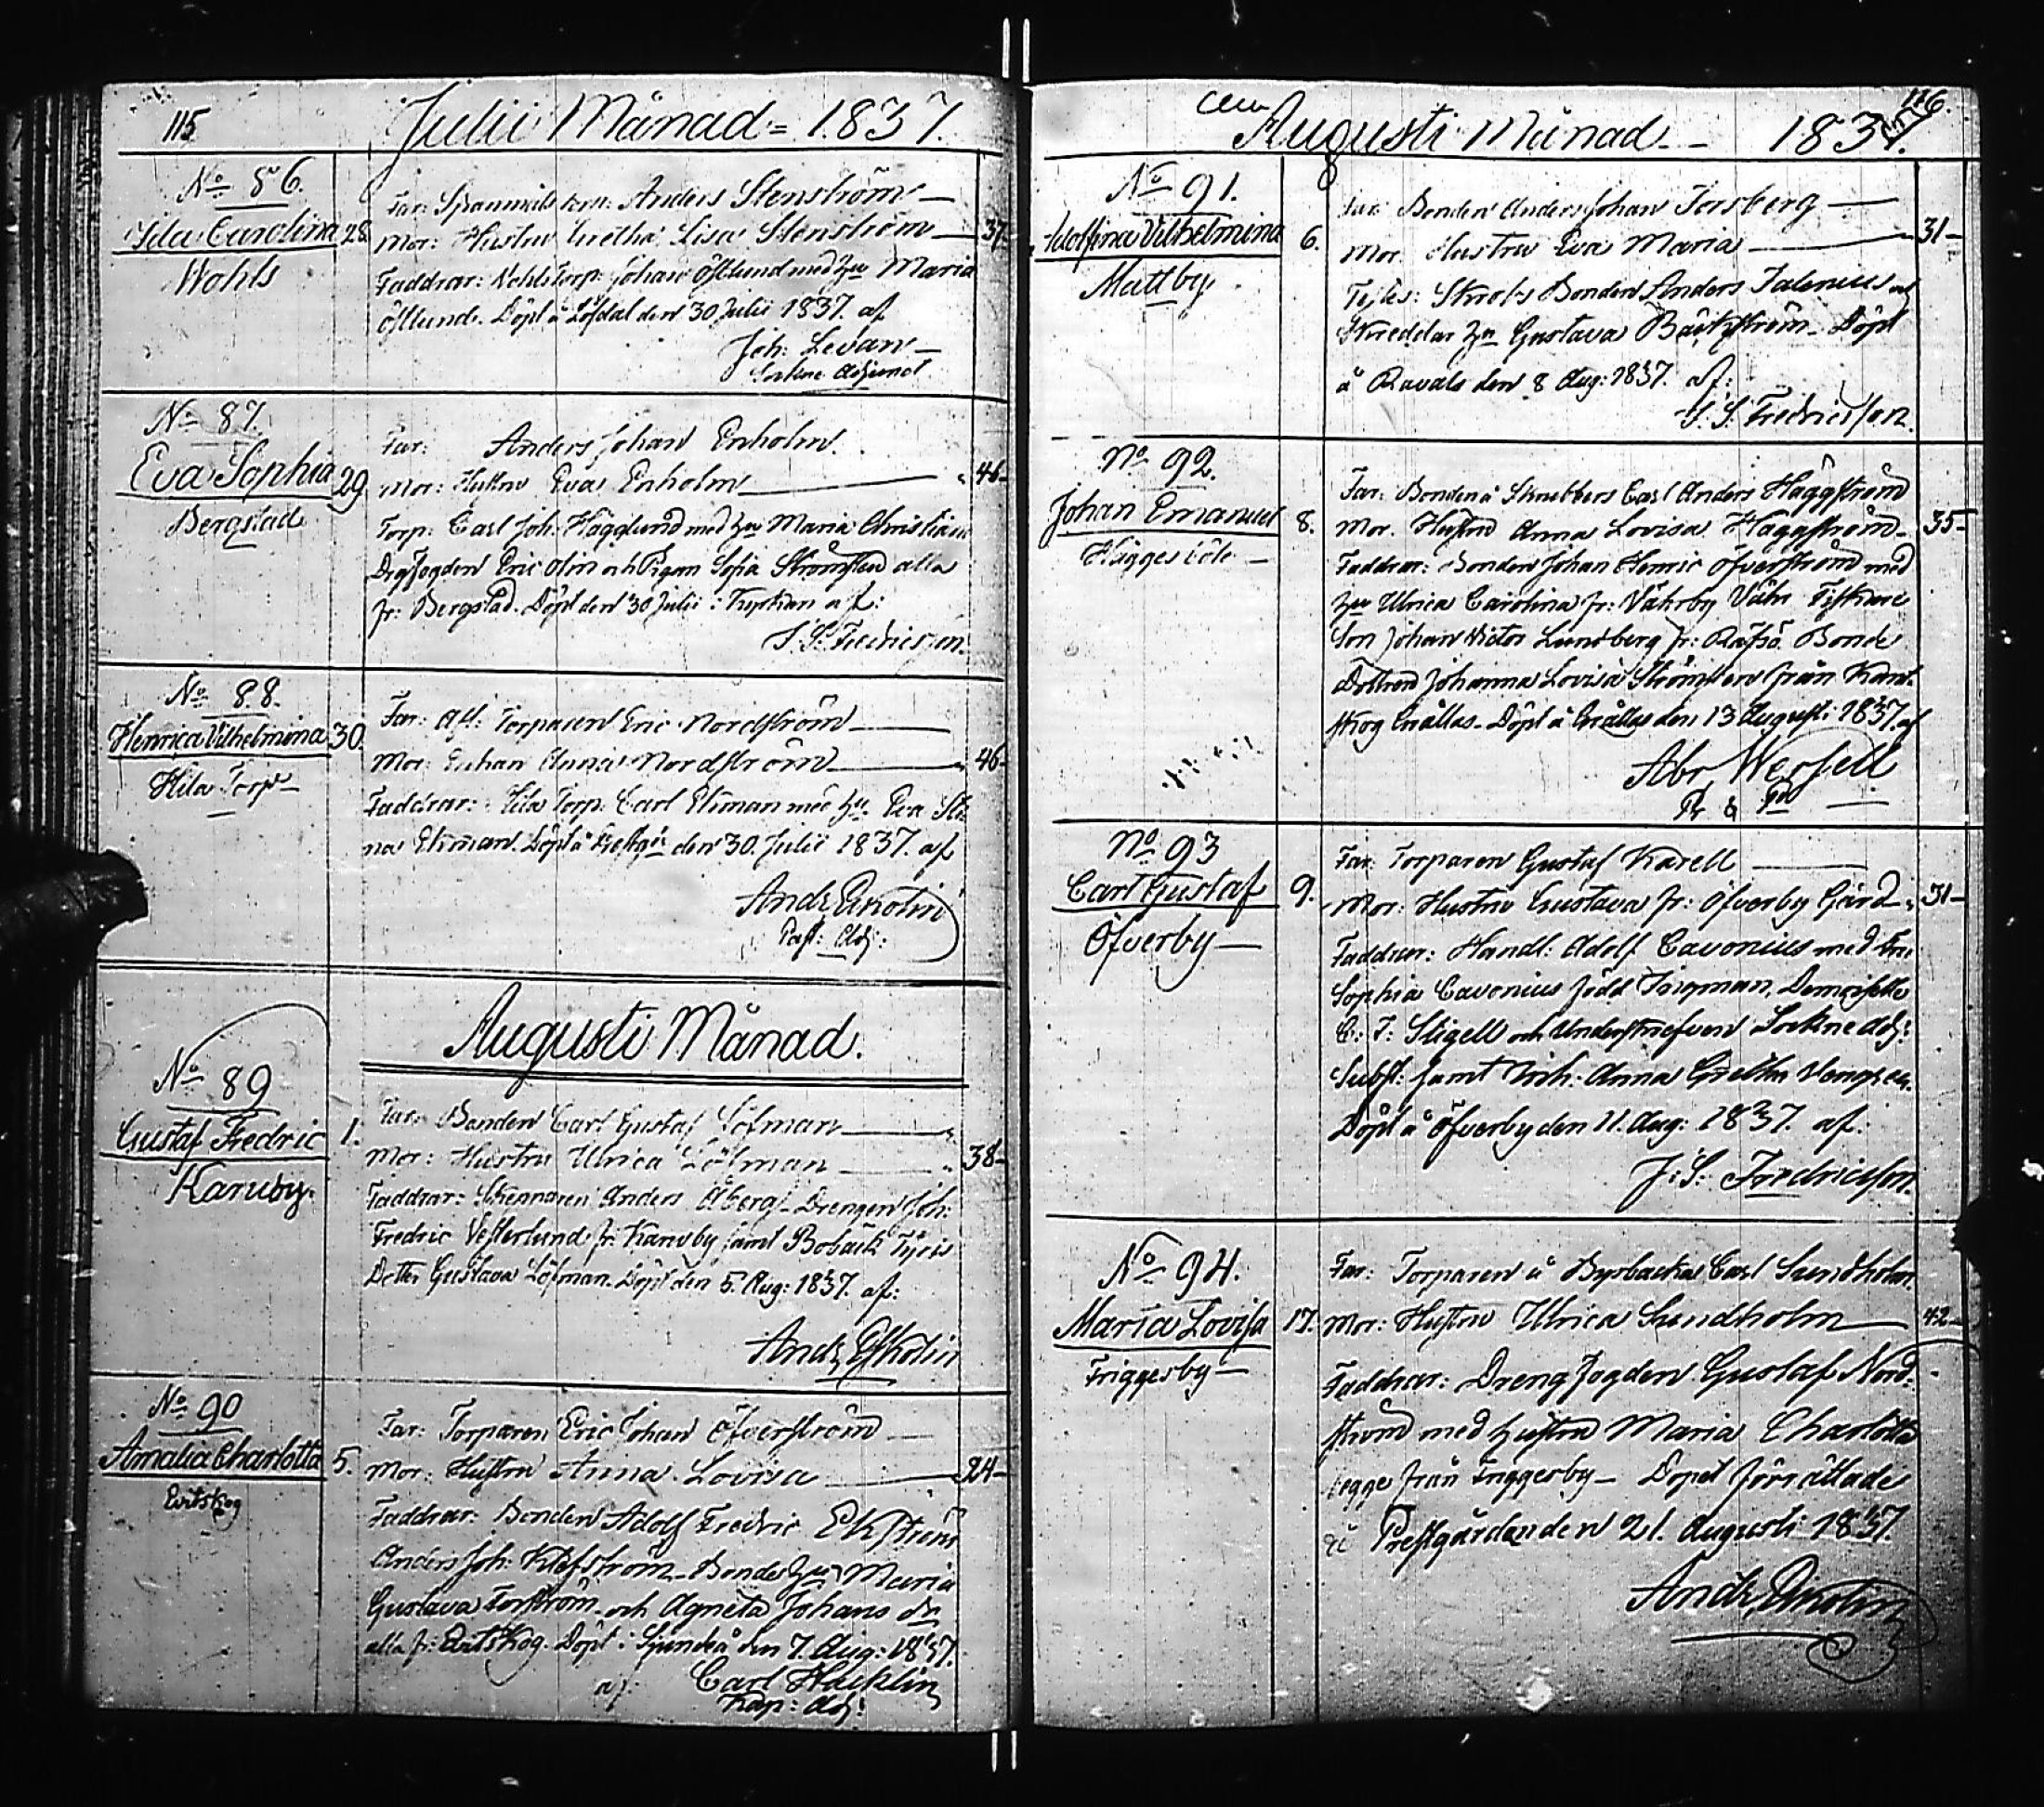 115
Julii Månad = 1837.
No 86.
Carolina 28.
Wohls
Far: Anders Stenström
Mor: Hustru Gretha Lisa Stenström 37
Faddrar: Wohls Torp: Johan Östlund med hu Maria
Östlund. Döpt å Löfdal den 30 Julii 1837. af
Joh: Levan
Sockne Adjunct
No 87.
Eva Sophia 29
Bergstad
Far: Anders Johan Enholm.
Mor: Hustru Eva Enholm 46
Torp: Carl Joh: Hägglund med hu Maria Christina
Eric Olin och Pigan Sofia Strömsten alla
fr: Bergstad. Döpt den 30 Julii i Kyrkan af:
J. S. Fredricsson.
No 88.
Henrica Vilhelmina 30.
Hila Torp
Far: Afl: Torparen Eric Nordström
Mor: Enkan Anna Nordström 46
Faddrar: Hila Torp: Carl Ekman med hu Eva Sti
na Ekman. Döpt å den 30. Julii 1837. af
Past: Adj:
Augusti Månad.
No 89
Gustaf Fredric 1.
Karuby.
Far: Bonden Carl Gustaf Löfman
Mor: Hustru Ulrica Löfman 38
Faddrar: Anders Åberg Drengen Joh:
Fredric Vesterlund fr: Karuby samt Boback
Gustava Löfman. Döpt den 5. Aug: 1837. af:
No 90
Amalia Charlotta 5.
Evitskog
Far: Torparen Eric Johan Öfverström
Mor: Hustru Anna Lovisa 24
Faddrar: Bonden Adolf Fredric Ekström
Anders Joh: Bonde hu Maria
Gustava Forsström och Agneta Johans dr
alla fr: Evitskog. Döpt i Sjundeå den 7. Aug: 1837.
af: Carl Hacklin
Kap: Adj:
116.
Augusti Månad 1837.
No 91.
Adolfina Vilhelmina 6.
Mattby
Far: Bonden Anders Johan Forsberg
Mor: Hustru Eva Maria 31
Testes: Bonden Anders Falenius
Skreddar hu Gustava Bäckström. Döpt
å Ravals den 8 Aug: 1837. af:
J. S. Fredricsson.
No 92.
Johan Emanuel 8.
Häggesböle
Far: Bonden å Skrubbers Carl Anders Häggström
Mor: Hustru Anna Lovisa Häggström 35
Faddrar: Bonden Johan Henric Öfverström med
hu Ulrica Carolina fr: Fiskare
Son Johan Victor Lundberg fr: Räfsö Bonde
Dottren Johanna Lovisa Strömsten från Kant
skog Grållas. Döpt å Grållas den 13 Augusti 1837. af
Abr Wersell
No 93
Carl Gustaf 9.
Öfverby
Far: Torparen Gustaf Karell
Mor: Hustru Gustava fr: Öfverby Gård 31
Faddrar: Handl: Adolf Cavonius med Fru
Sophia Cavonius född Demoiselle
C: J: Stigell och Underskrefven Sockne Adj:
Subst: samt Anna Gretha
Döpt å Öfverby den 11. Aug: 1837. af:
J: S: Fredricsson.
No 94.
Maria Lovisa 17.
Friggesby
Far: Torparen å Bysbacka Carl Sundholm
Mor: Hustru Ulrica Sundholm 42
Faddrar: Dreng fogden Gustaf Nord:
strand med hustru Maria Charlotta
begge från Friggesby. Döpet förrättade
å Prestgården den 21. Augusti 1837.